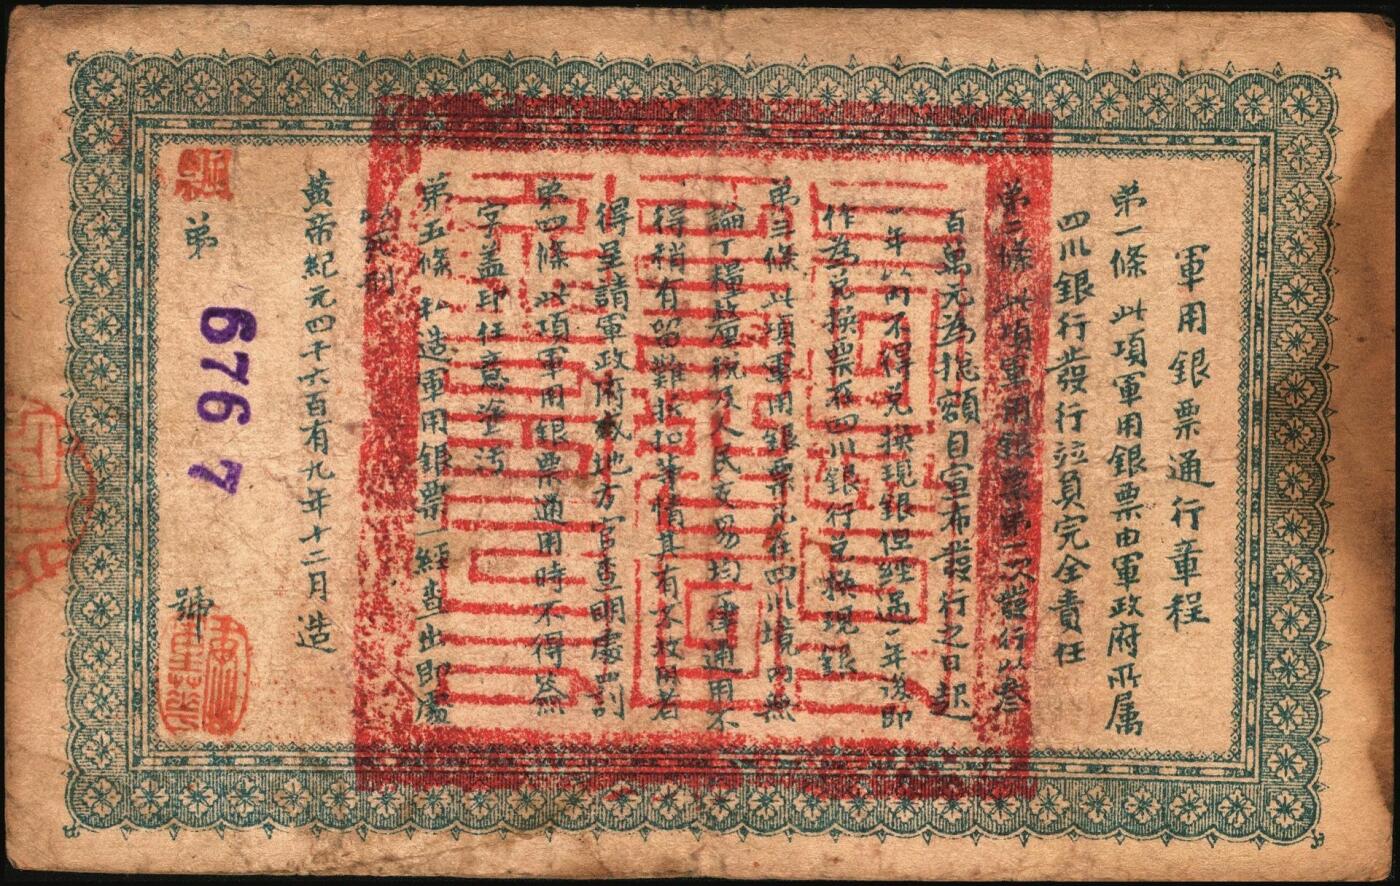 軍用銀票通行章程
第一條 此項軍用銀票由軍政府所属
四川銀行發行並負完全責任
第二條 此項軍用銀票第二次發行以叁
百萬元為總額自宣布發行之日起
一年以內不得兌換現銀但經過一年後即
作為兌換票在四川銀行兌換現銀
第三條 此項軍用銀票凡在四川境內無
論丁糧政厘税及人民交易均一律通用不
得稍有留難折扣等情其有不收用者
得呈請軍政府或地方官查明處罰
第四條 此項軍用銀票通用時不得簽
字蓋印任意塗污
第五條 私造軍用銀票一經查出即處
以死刑
黄帝紀元四千六百有九年十二月造
弟 6767 號